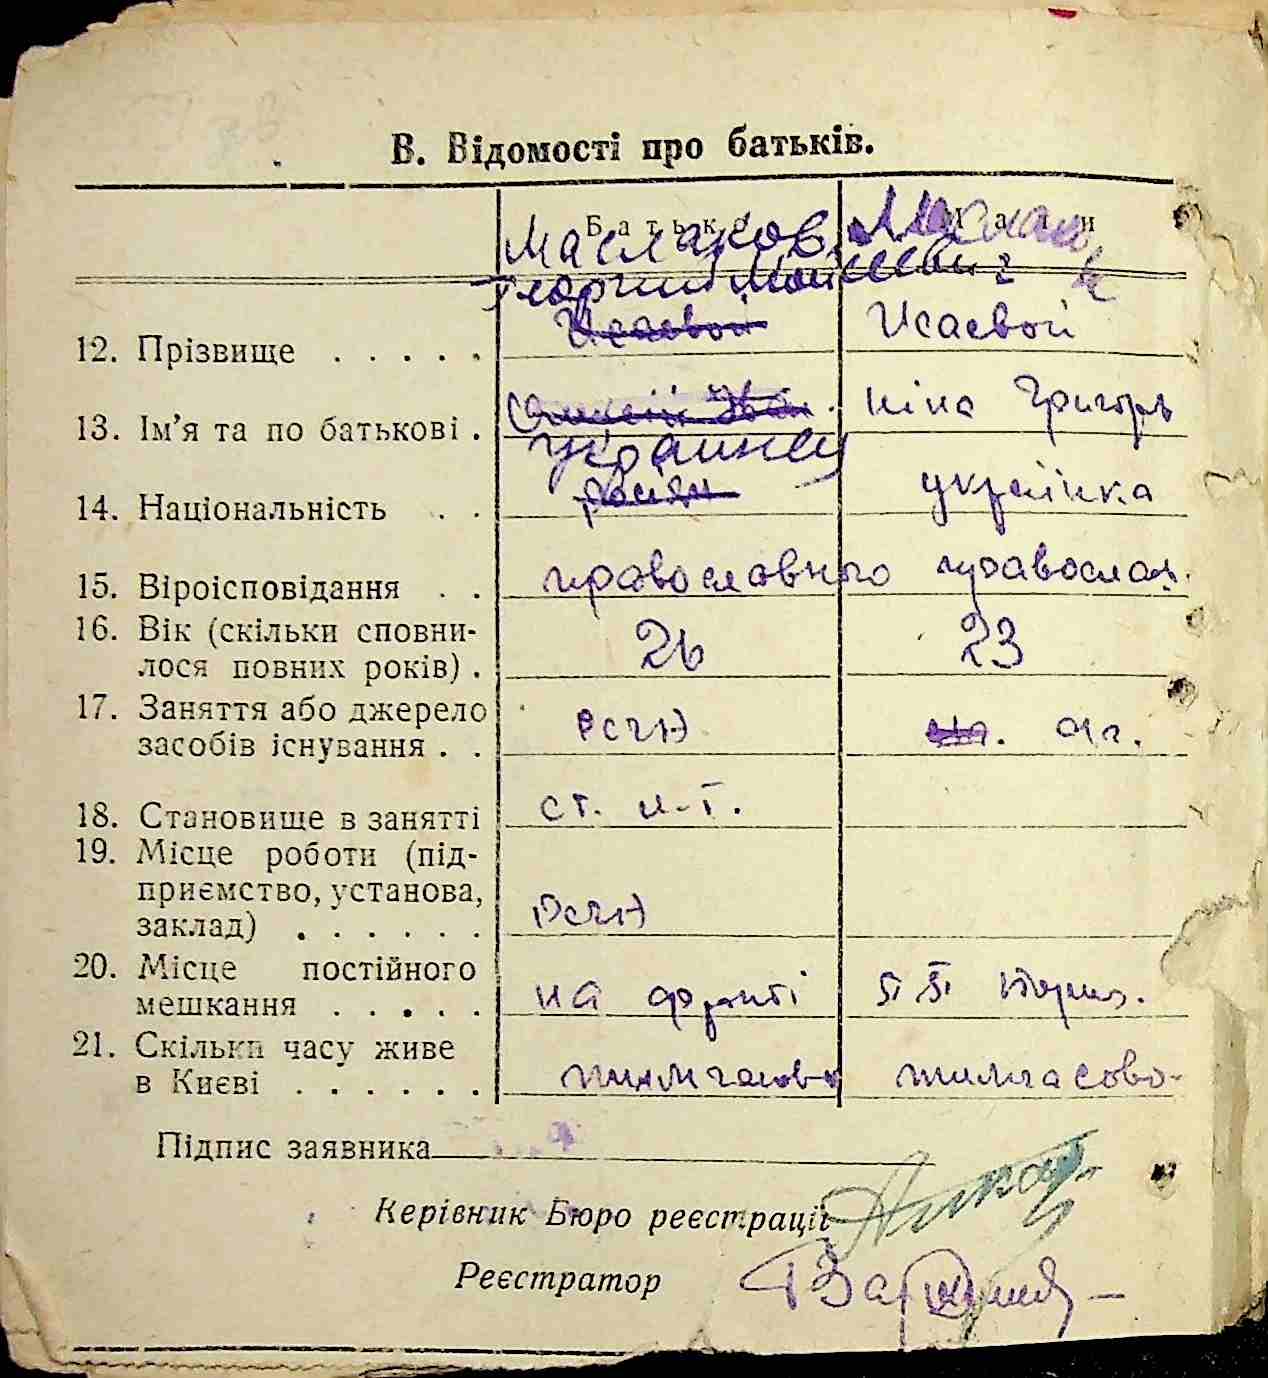 В. Відомості про батьків.
Батько Мати
Маслаков
Георгий Моисеевич
12. Прізвище . . . . . Исаевой Исаевой
13. Ім'я та по батькові . Ніна Григорь
украинец
14. Національність . . росіян українка
15. Віроісповідання . . православного православн.
16. Вік (скільки сповни-
лося повних років) . 26 23
17. Заняття або джерело
засобів існування . . РСЧА
18. Становище в занятті ст. л-т.
19. Місце роботи (під-
приємство, установа,
заклад) . . . . . . РСЧА
20. Місце постійного
мешкання . . . . . на фронті
21. Скільки часу живе
в Києві . . . . . . тимчасово тимчасово
Підпис заявника
Керівник Бюро реєстрації
Реєстратор